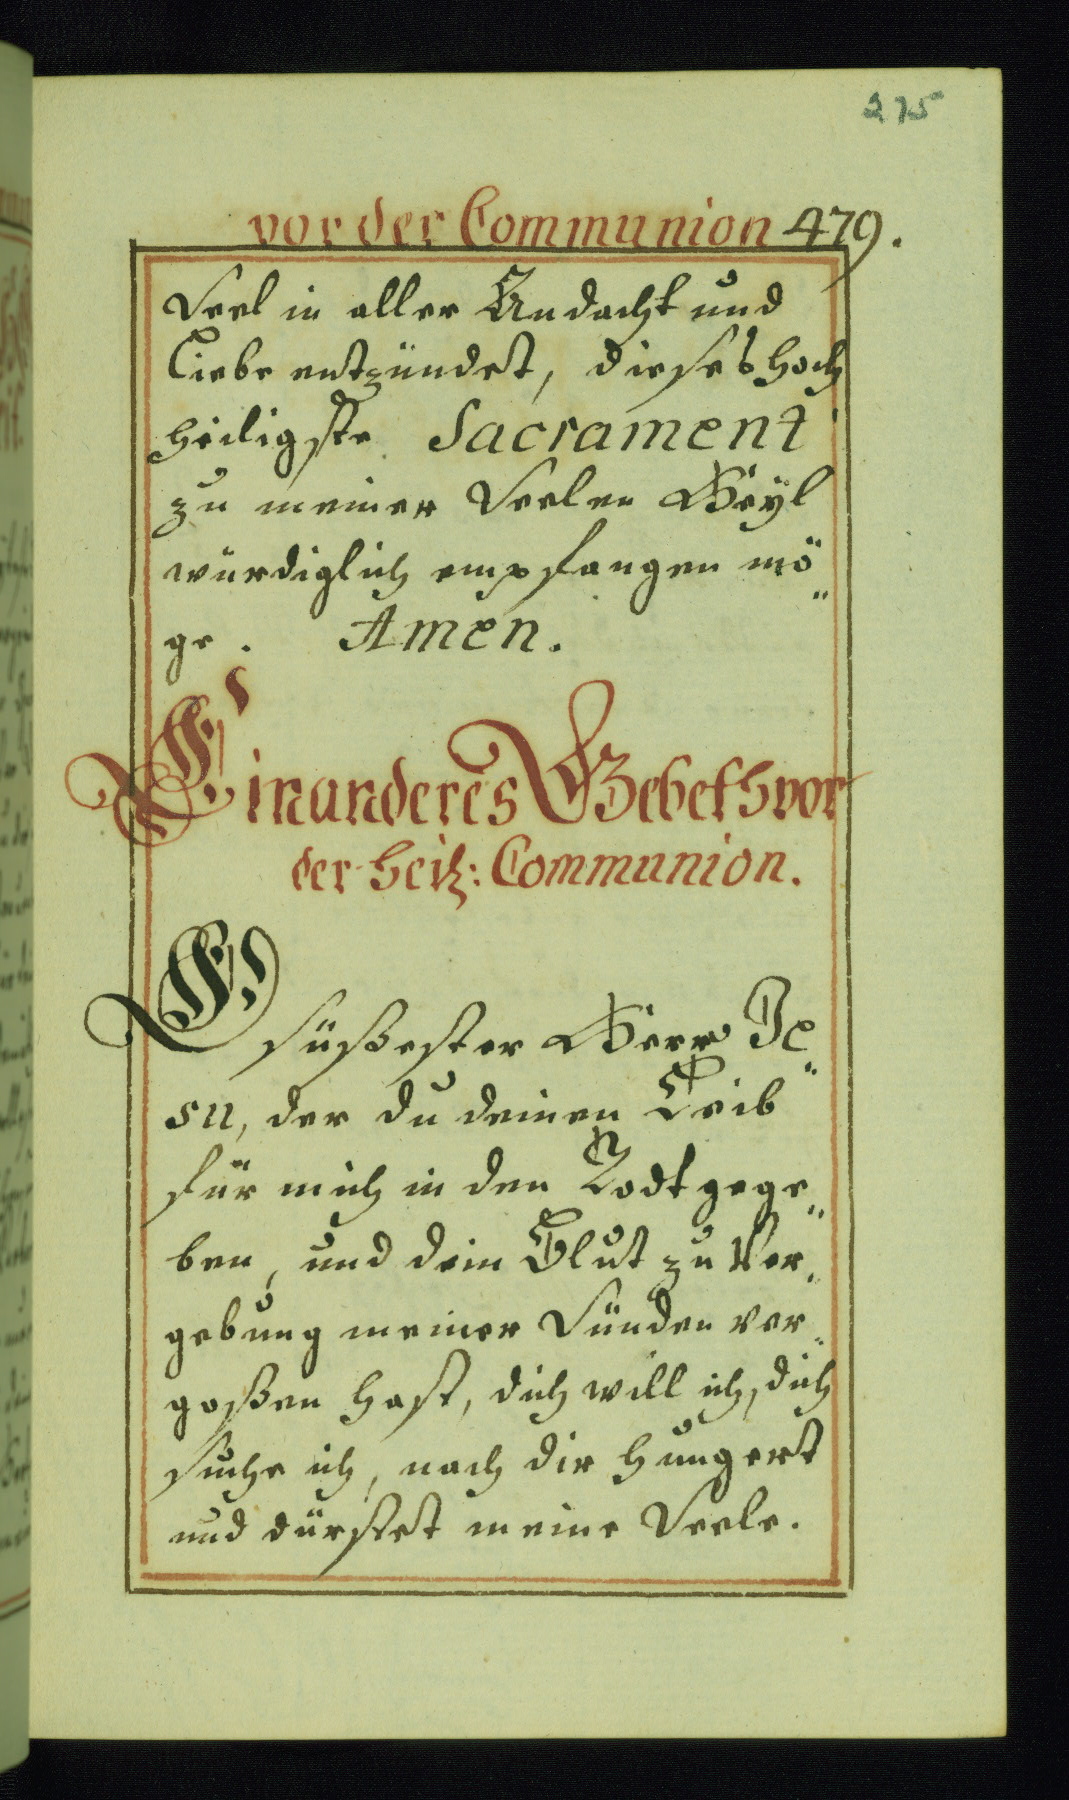 275
vor der Communion 479.
Seel in aller Andacht und
Liebe entzündet, dieses hoch
heiligste Sacrament
zu meiner Seelen Heyl
würdiglich empfangen mö„
ge. Amen.
Ein anderes Gebeth vor
der heil: Communion.
O süßester Herr Je„
su, der du deinen Leib
für mich in den Todt gege„
ben, und dein Blut zu Ver„
gebung meiner Sünden ver„
goßen hast, dich will ich, dich
suche ich, nach dir hungert
und dürstet meine Seele.